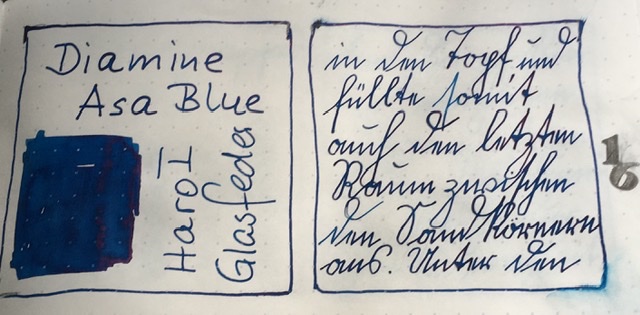 Diamine
Asa Blue
Harot
Glasfeder
in den Topf und
füllte somit
auch den letzten
Raum zwischen
den Sandkörnern
aus. Unter den
16